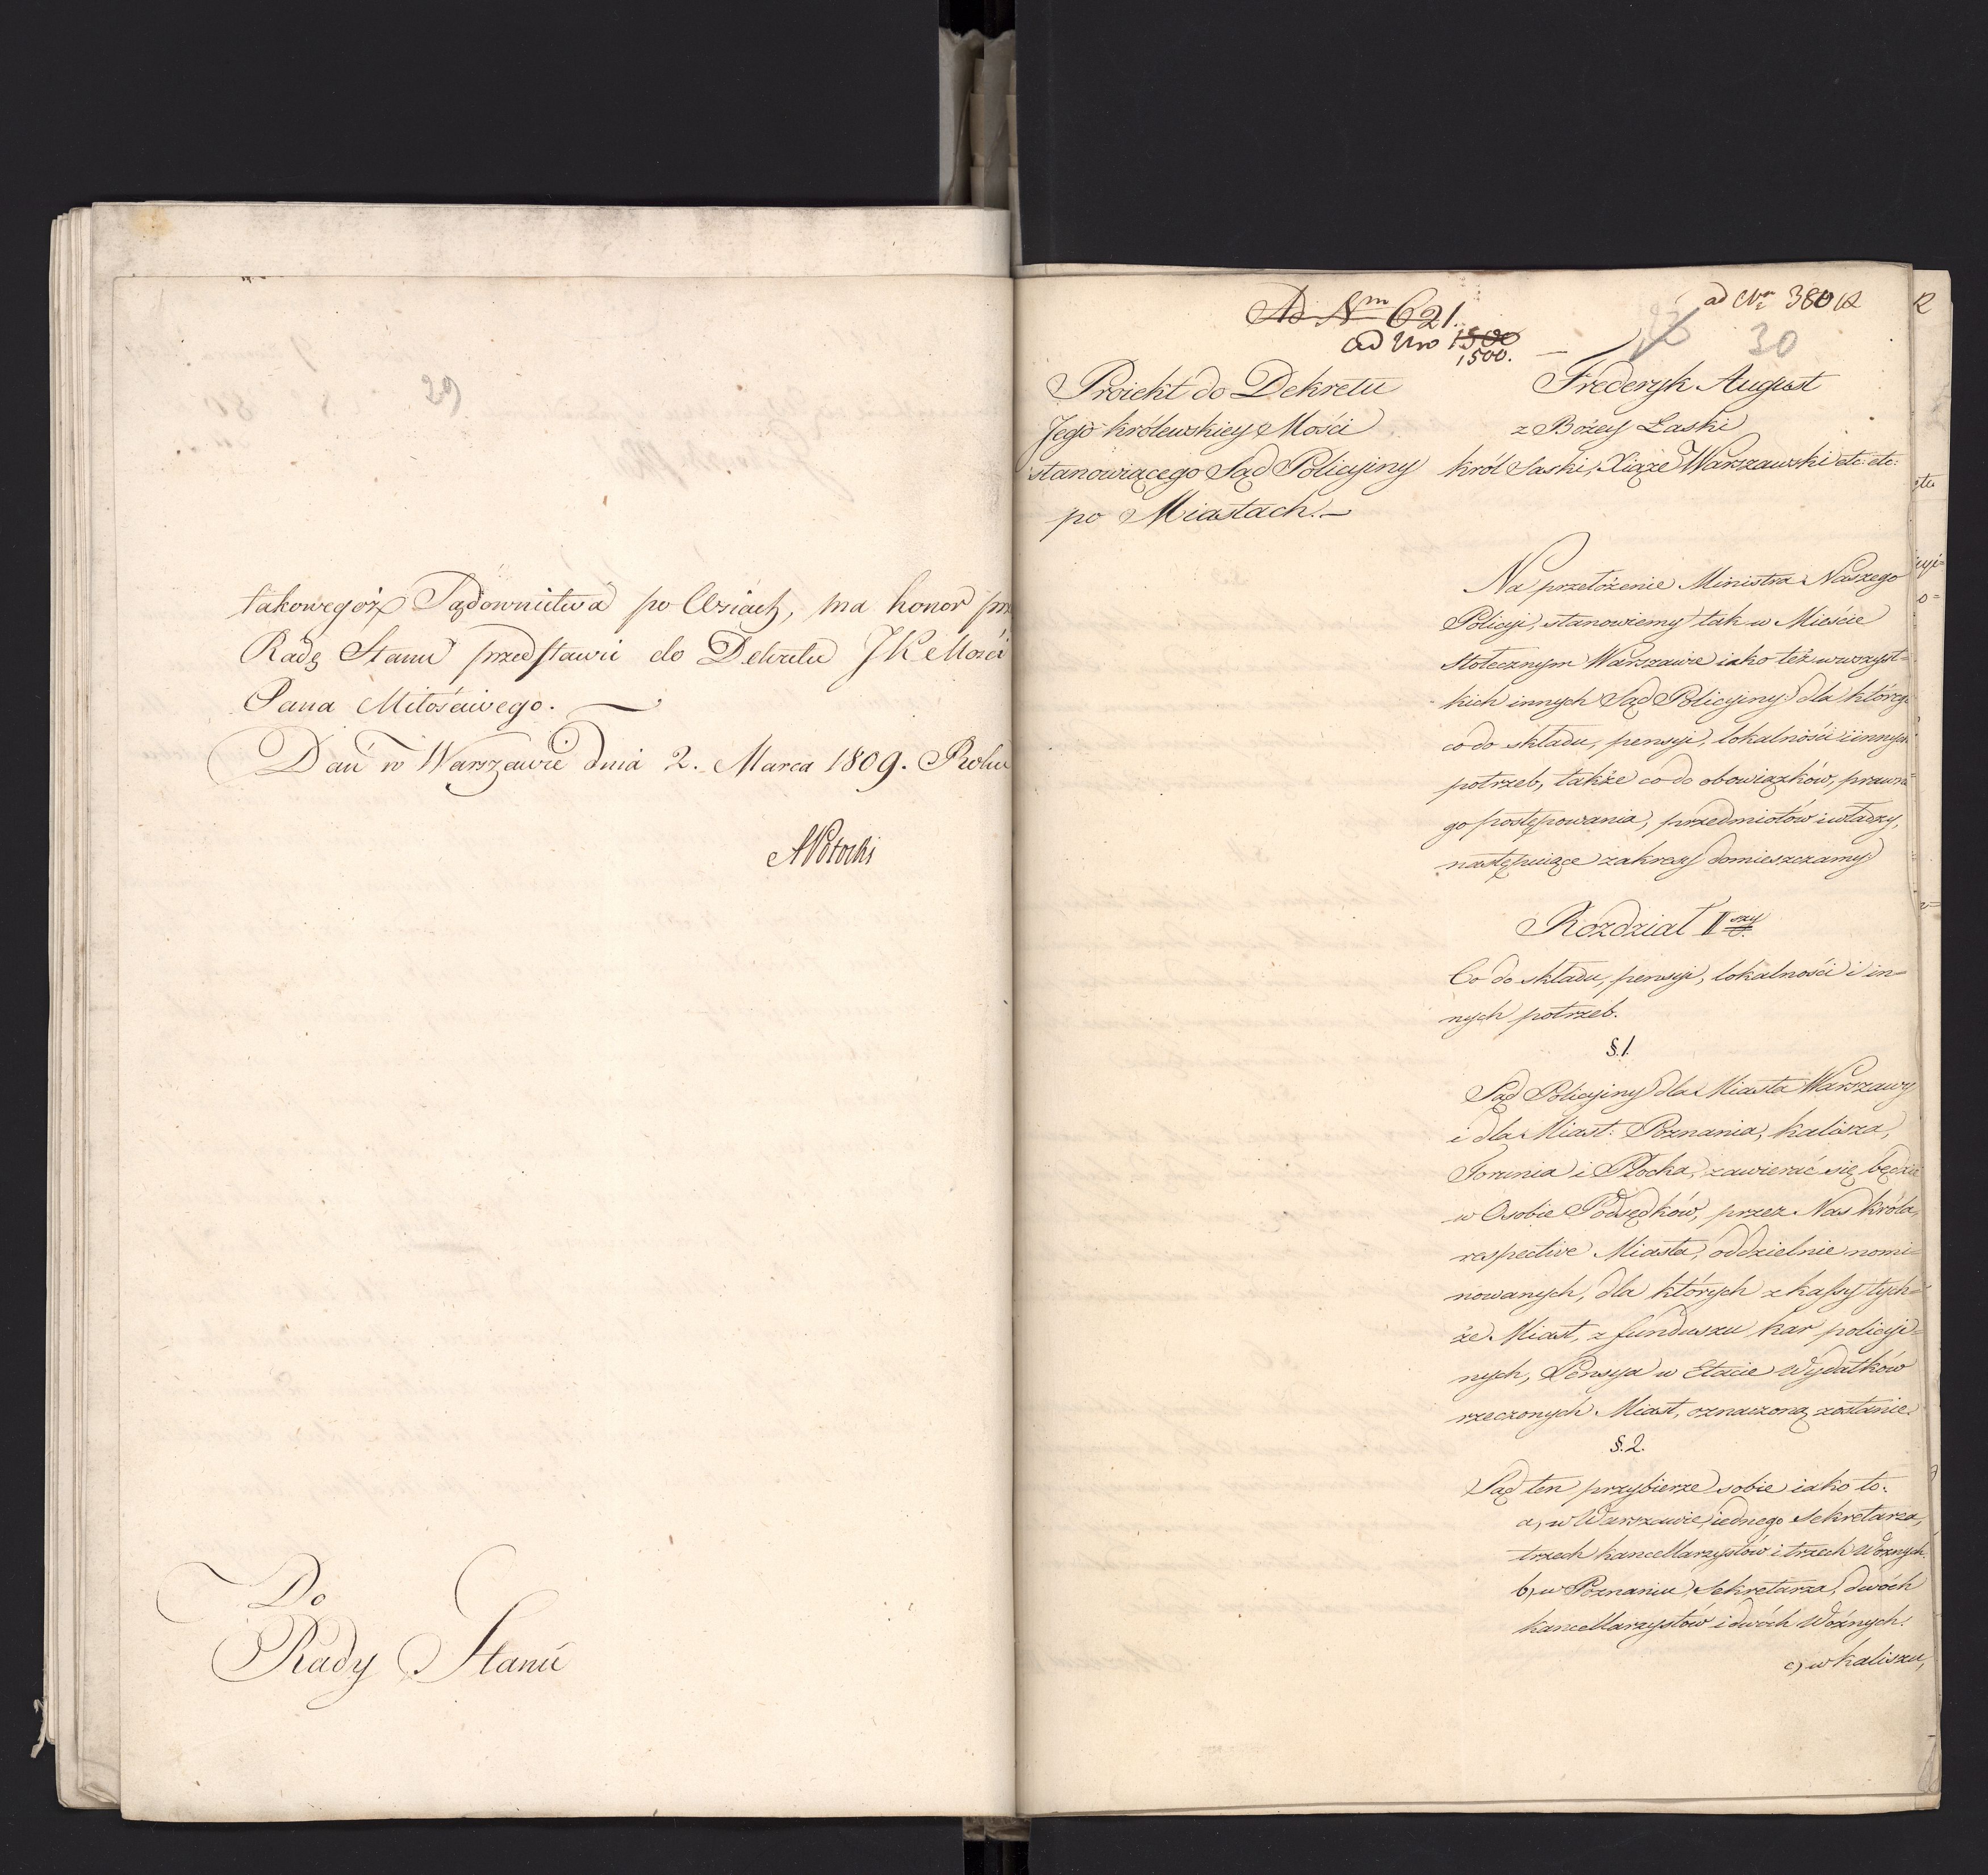 29
takowegoż Sądownictwa po Wsiach, ma honor
Radę Stanu przedstawić do Dekretu JKMości
Pana Miłościwego.
Dan w Warszawie dnia 2. Marca 1809. Roku
APotocki
Do
Rady Stanu
Ad Nm 621.
ad Nro 1500
1500.
ad Nr 380
30
Proiekt do Dekretu
Jego królewskiey Mości
stanowiącego Sąd Policyiny
po Miastach.
Frederyk August
z Bożey Łaski
król Saski, Xiąże Warszawski etc: etc:
Na przełożenie Ministra Naszego
Policyi, stanowiemy tak w Mieście
Stołecznym Warszawie iako też w wszyst=
kich innych Sąd Policyiny dla którego
co do składu, pensyi, lokalności i innych
potrzeb, także co do obowiązków, prawne=
go postępowania, przedmiotów i władzy,
następuiące zakresy domieszczamy
Rozdział I szy
Co do składu, pensyi, lokalności i in=
nych potrzeb.
§.1.
Sąd Policyiny dla Miasta Warszawy
i dla Miast: Poznania, kalisza,
Torunia i Płocka, zawierać się będzie
w Osobie Podsędków, przez Nas króla,
respective Miasta, oddzielnie nomi=
nowanych, dla których z kassy tych=
że Miast, z funduszu kar policyi=
nych, Pensya w Etacie Wydatków
rzeczonych Miast, oznaczoną zostanie.
§.2.
Sąd ten przybierze sobie iako to:
a, w Warszawie, iednego Sekretarza,
trzech kancellarzystów i trzech Woźnych.
b, w Poznaniu, Sekretarza, dwóch
kancellarzystów i dwóch Woźnych.
c, w kaliszu,